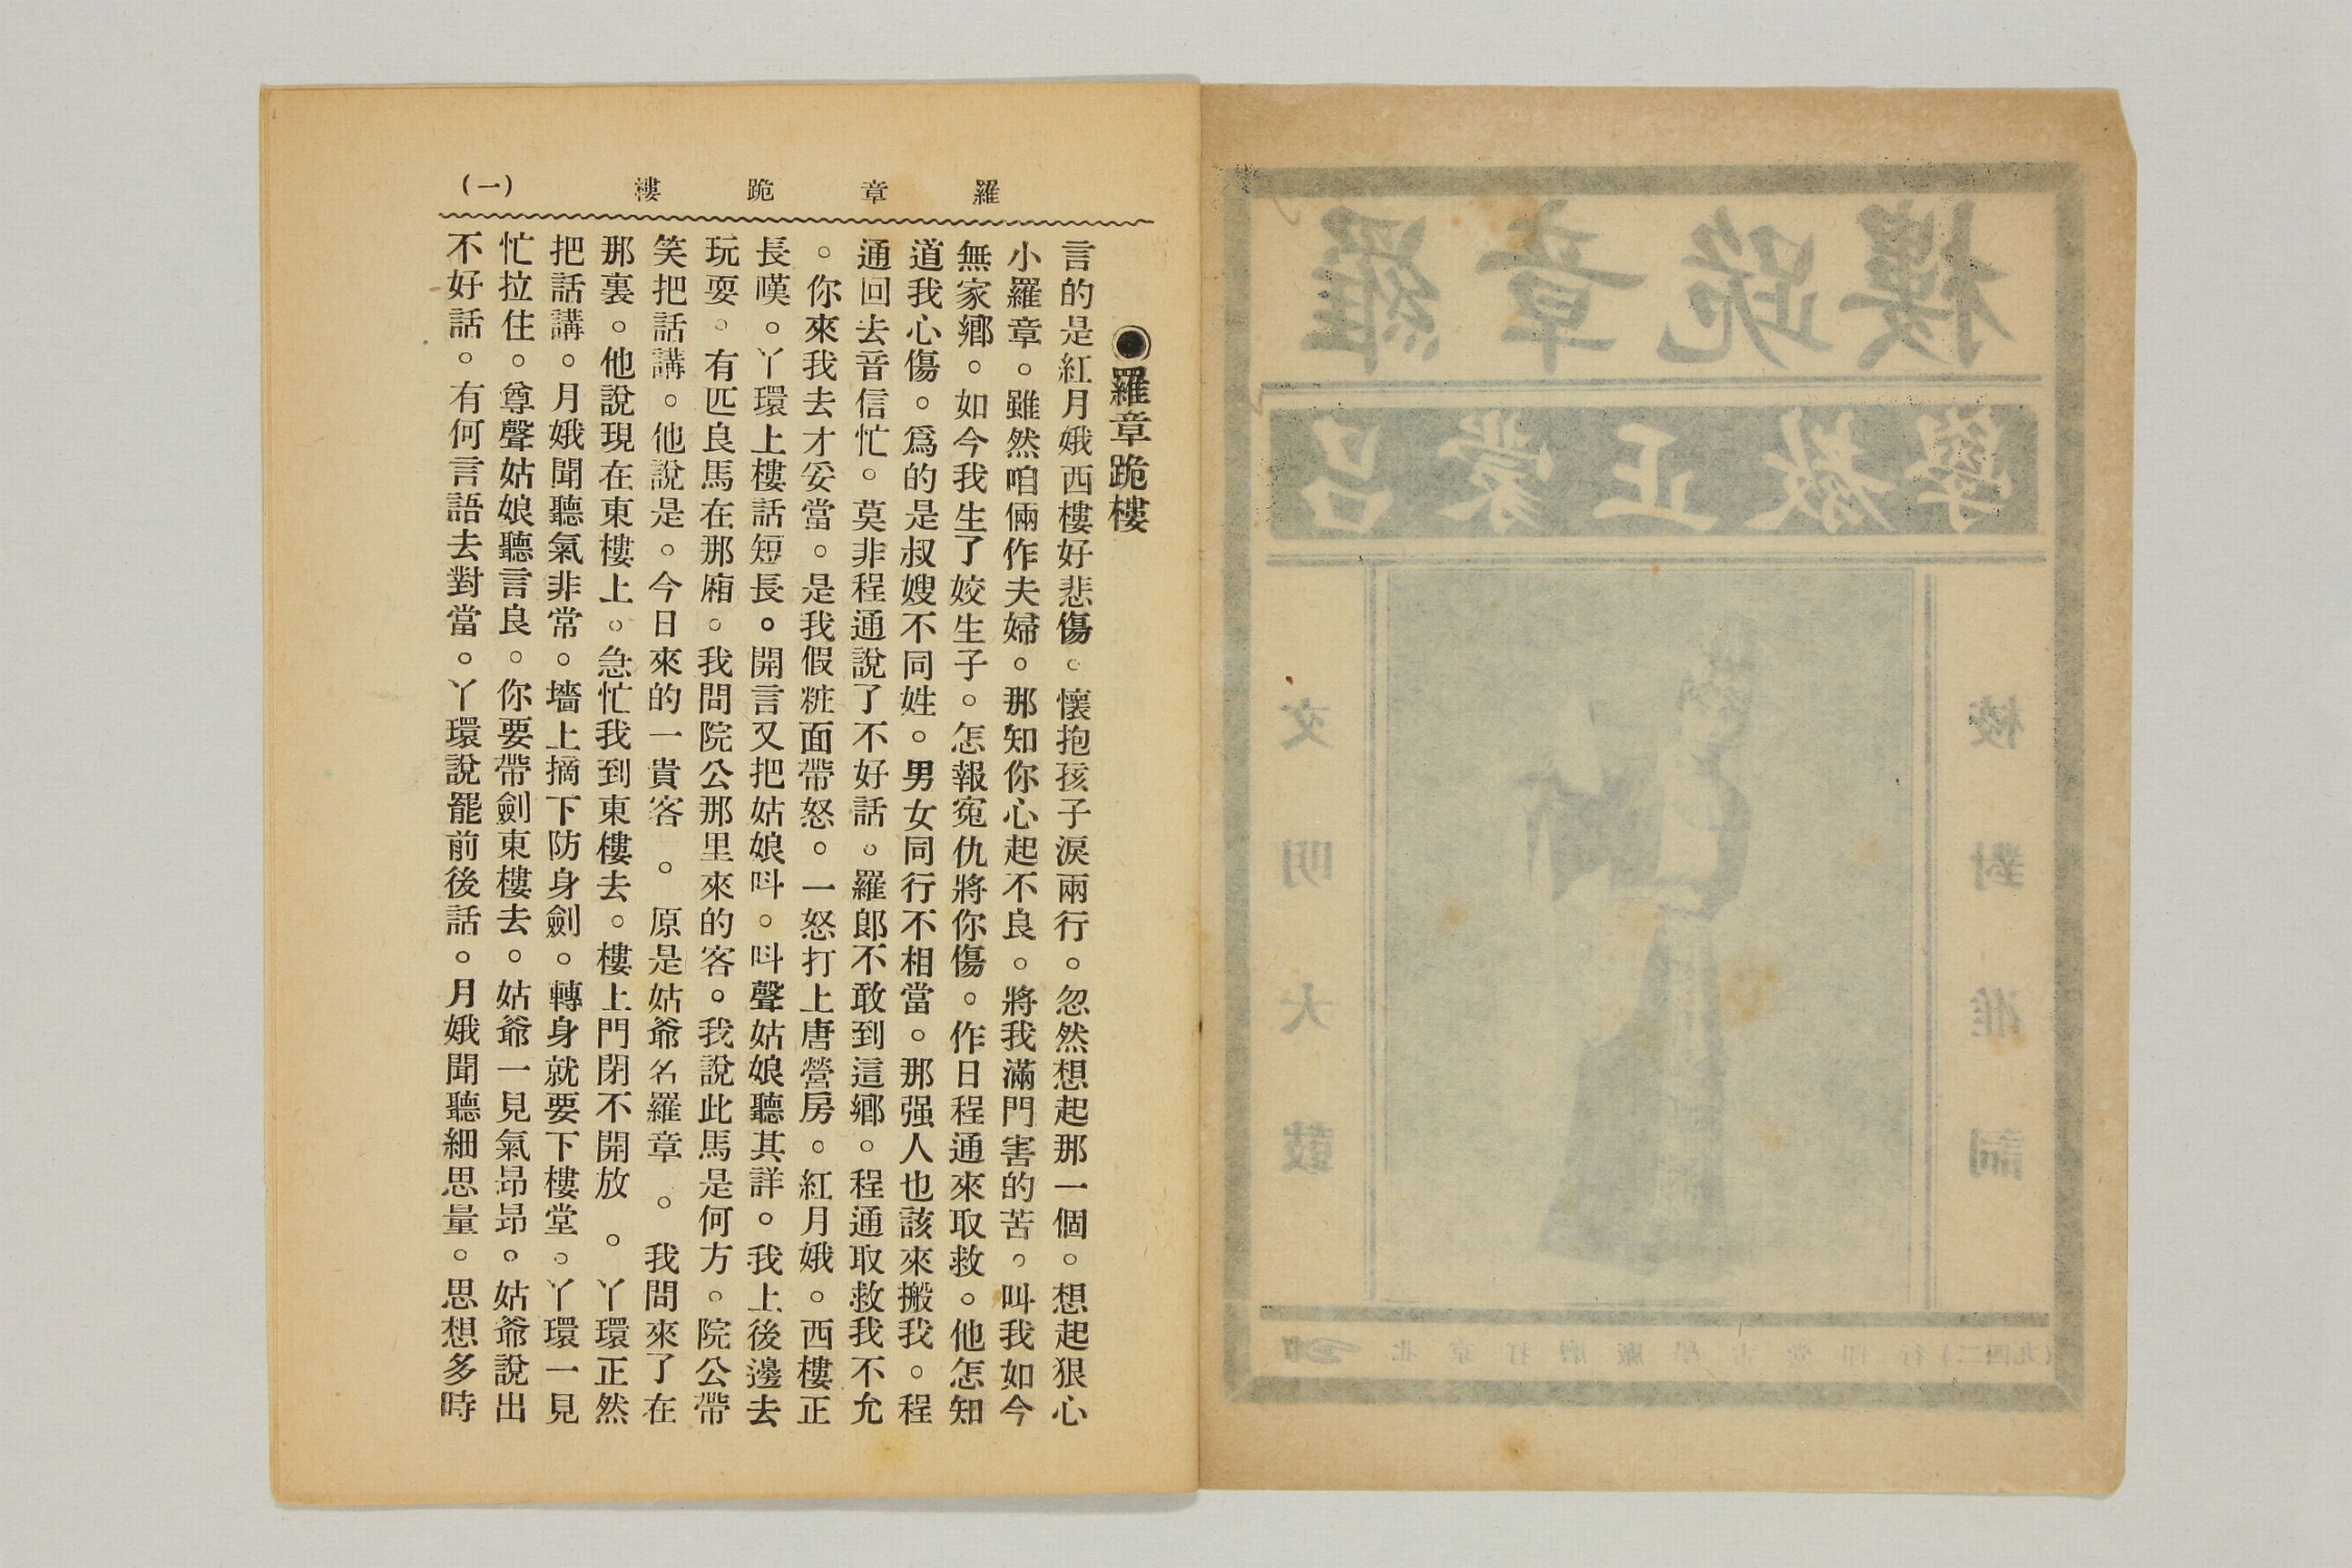 樓跪章羅
學敎正蒙呂
校對准詞
文明大鼓
羅章跪樓
(一)
●羅章跪樓
言的是紅月娥西樓好悲傷。懷抱孩子淚兩行。忽然想起那一個。想起狠心
小羅章。雖然咱倆作夫婦。那知你心起不良。將我滿門害的苦。叫我如今
無家鄉。如今我生了姣生子。怎報寃仇將你傷。作日程通來取救。他怎知
道我心傷。爲的是叔嫂不同姓。男女同行不相當。那强人也該來搬我。程
通回去音信忙。莫非程通說了不好話。羅郎不敢到這鄉。程通取救我不允
。你來我去才妥當。是我假粧面帶怒。一怒打上唐營房。紅月娥。西樓正
長嘆。丫環上樓話短長。開言又把姑娘呌。呌聲姑娘聽其詳。我上後邊去
玩耍。有匹良馬在那廂。我問院公那里來的客。我說此馬是何方。院公帶
笑把話講。他說是。今日來的一貴客。原是姑爺名羅章。我問來了在
那裏。他說現在東樓上。急忙我到東樓去。樓上門閉不開放。丫環正然
把話講。月娥聞聽氣非常。墻上摘下防身劍。轉身就要下樓堂。丫環一見
忙拉住。尊聲姑娘聽言良。你要帶劍東樓去。姑爺一見氣昂昂。姑爺說出
不好話。有何言語去對當。丫環說罷前後話。月娥聞聽細思量。思想多時